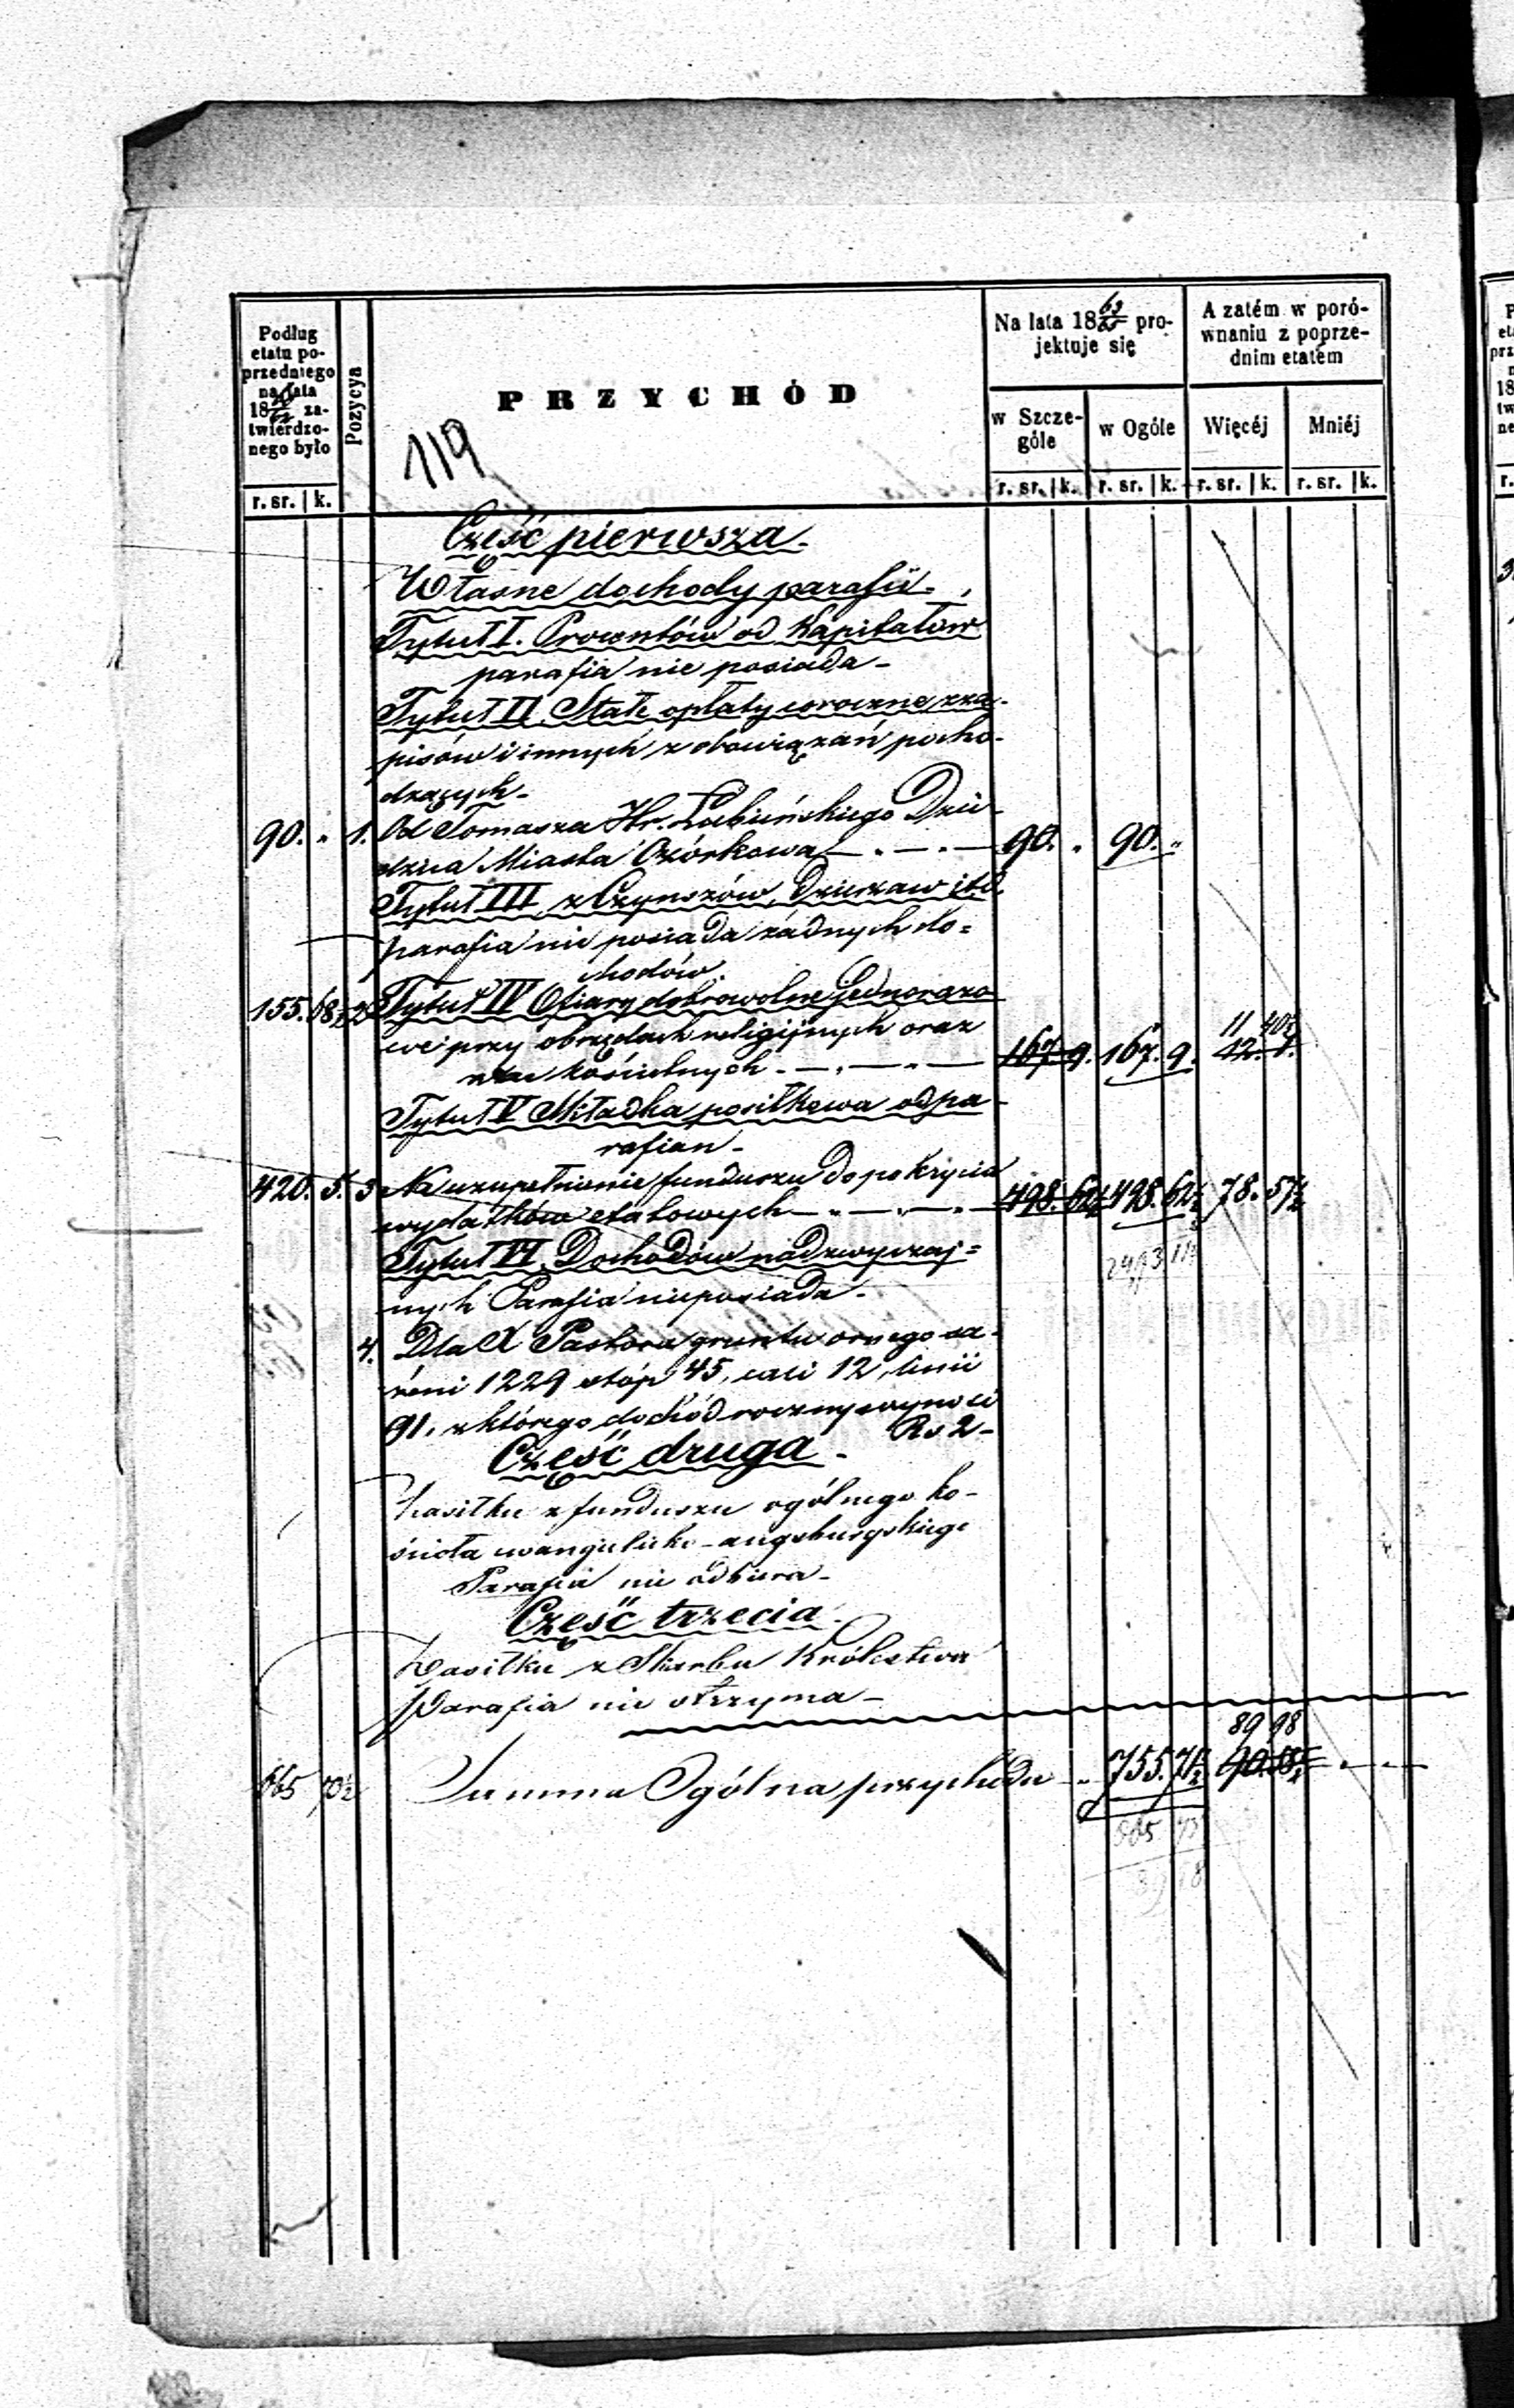 Podług
etatu po-
przedniego
na lata
18 za-
twierdzo-
nego było
r. sr. | k.
Pozycya
PRZYCHÓD
119
Na lata 18 63/65 pro-
jektuje się
w Szcze-
góle
w Ogóle
r. sr. | k. r. sr. | k.
A zatém w poró-
wnaniu z poprze-
dnim etatem
Więcéj
Mniéj
r. sr. | k. r. sr. | k.
Część pierwsza.
Własne dochody parafii.
Tytuł I. Prowentów od Kapitałów
parafia nie posiada -
Tytuł II Stałe opłaty coroczne z za-
pisów i innych zobowiązań pocho-
dzących -
90. " 1. Od Tomasza Hr. Łubieńskiego Dzie-
dzica Miasta Ozórkowa 90. " 90. "
Tytuł III z Czynszów, Dzierzaw itd.
parafia nie posiada żadnych do=
chodów.
155. 68 ½ 2 Tytuł IV Ofiary dobrowolne jednorazo
we przy obrzędach religijnych oraz
kościelnych 167 9. 167. 9. 11 40½
12. 1.
Tytuł V Składka posiłkowa od pa-
rafian -
420. 5. 3 Na uzupełnienie funduszu do pokrycia
wydatków etatowych 498. 62½ 498. 62½ 78. 57½
Tytuł VI Dochodów nadzwyczaj=
nych Parafia nieposiada -
4. Dla X Pastora gruntu ornego są-
żeni 1229 stóp 45, cali 12, linii
91, z którego dochód roczny wynosi
Rs 2-
Cześć druga -
Zasiłku z funduszu ogólnego ko-
ścioła ewangelicko-augsburgskiego
Parafia nie odbiera -
Cześć trzecia
Zasiłku z Skarbu Królestwa
Parafia nie otrzyma -
89 98
665 73½ Summa Ogólna przychodu 755. 71½ 90. 58½